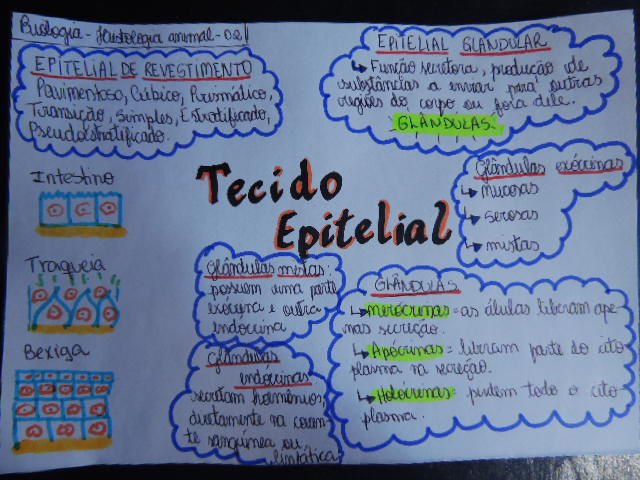 Biologia - Histologia animal - 02/
EPITELIAL DE REVESTIMENTO
Pavimentoso, Cúbico, Prismático,
Transição, Simples, Estratificado,
Pseudoestratificado.
EPITELIAL GLANDULAR
↳ Função secretora, produção de
substâncias a enviar para outras
regiões do corpo ou fora dele.
GLÂNDULAS
Glândulas exócrinas
↳ mucosas
↳ serosas
↳ mistas
Tecido
Epitelial
Intestino
Traqueia
Bexiga
Glândulas mistas:
possuem uma parte
exócrina e outra
endócrina
Glândulas
endócrinas
secretam hormônios
diretamente na corren
te sanguínea ou
linfática
GLÂNDULAS
↳ Merócrinas = as células liberam ape
nas secreção.
↳ Apócrinas = liberam parte do cito
plasma na secreção.
↳ Holócrinas = perdem todo o cito
plasma.